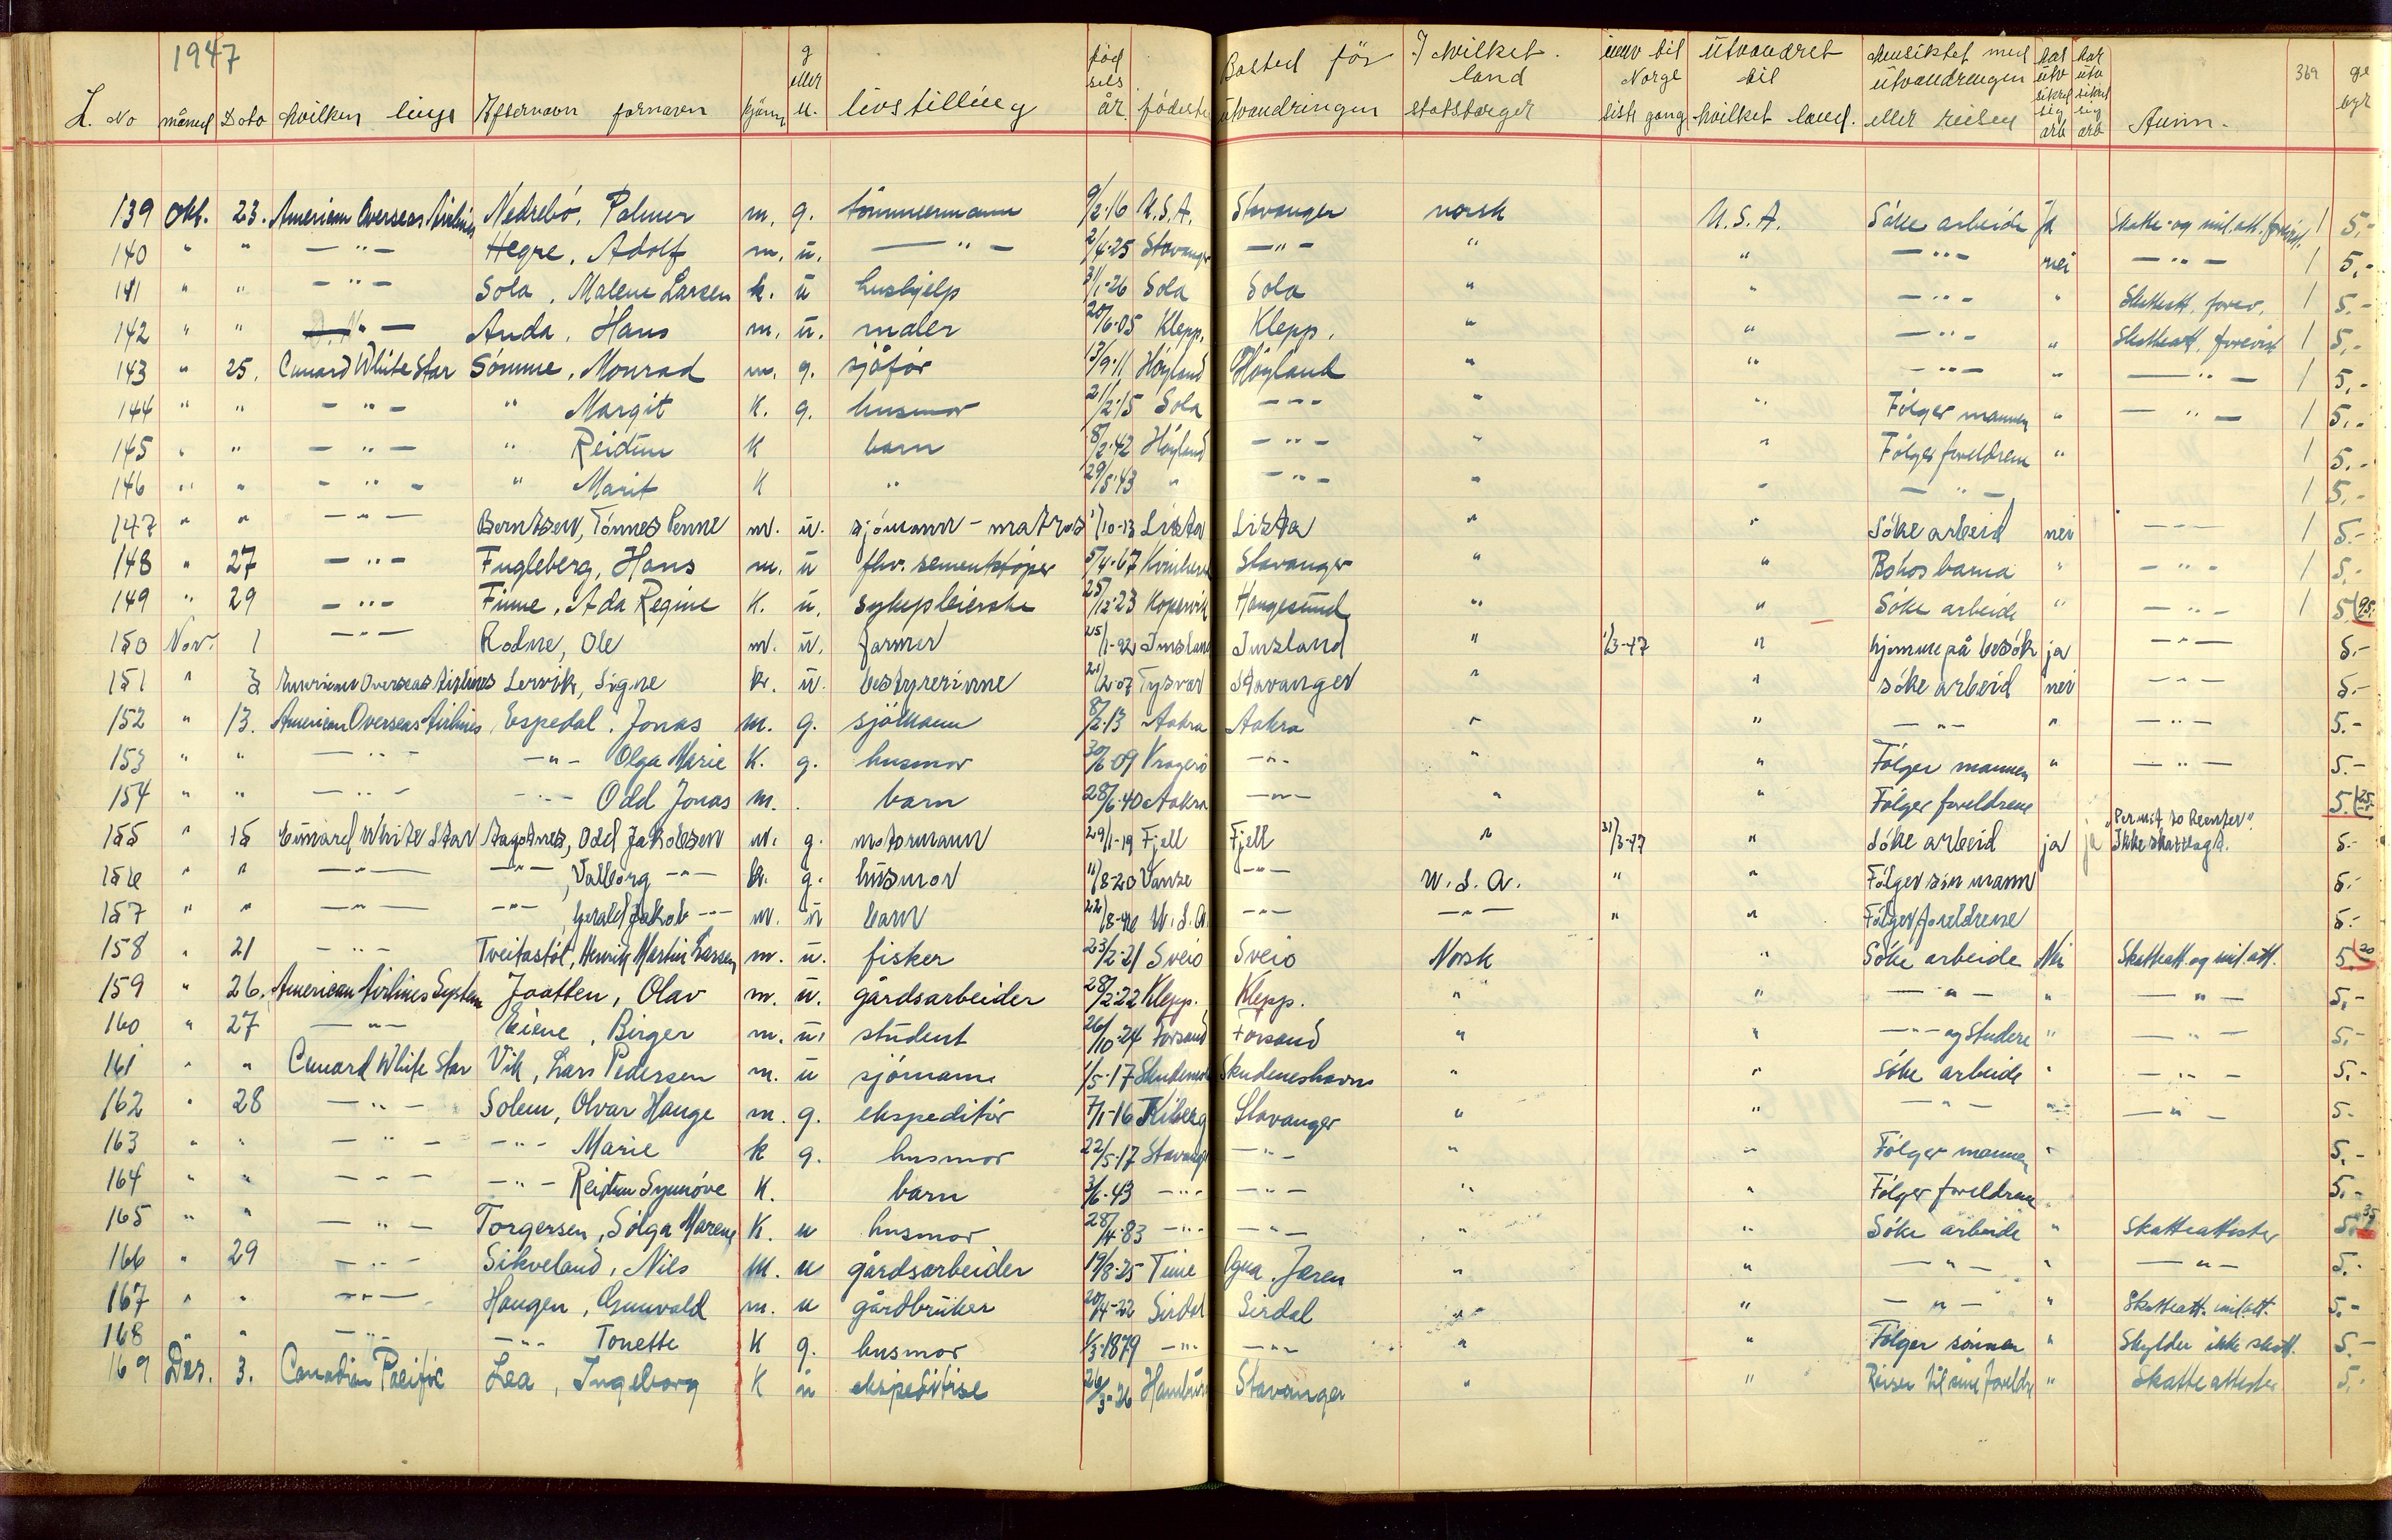 1947
369
L. No måned Dato hvilken linje Efternavn fornavn kjönn g eller u. livstilling föd sels år. födested Bosted för utvandringen I hvilket land statsborger innv til Norge siste gang utvandret til hvilket land. Hensiktet med utvandringen eller reisen har utv sikret sig arb har utv sikret sig arb Anm. ge byr
139 Okt. 23. American Overseas Airlines Nedrebö, Palmer m. g. tömmermann 9/2-16 U.S.A. Stavanger norsk U.S.A. Söke arbeide Ja Skatte- og mil. att. forevist. 1 5,-
140 " " - " - Hegre, Adolf m. u. - " - 2/4-25 Stavanger - " - " " - " - nei - " - 1 5,-
141 " " - " - Sola, Malene Larsen k. u hushjelp 31/1-26 Sola Sola " " - " - " Skatteatt. forev. 1 5,-
142 " " - " - Anda, Hans m. u. maler 20/6-05 Klepp. Klepp. " " - " - " Skatteatt. forevist 1 5,-
143 " 25. Cunard White Star Sömme, Monrad m. g. sjåför 13/9-11 Höyland Höyland " " - " - " - " - 1 5,-
144 " " - " - " Margit K. g. husmor 21/2-15 Sola - " - " " Fölger mannen " - " - 1 5,-
145 " " - " - " Reidun K barn 8/2-42 Höyland - " - " " Fölger foreldrene " 1 5,-
146 " " - " - " Marit K " 29/5-43 " - " - " " - " - 1 5,-
147 " " - " - Berntsen, Tönnes Penne m. u. sjömann - matros 1/10-13 Lista Lista " " Söke arbeid nei - " - 1 5,-
148 " 27 - " - Fugleberg, Hans m. u fhv. sementstöper 5/4-67 Stavanger " " Bo hos barna " - " - 1 5,-
149 " 29 - " - Finne, Ada Regine K. u. sykepleierske 25/12-23 Kopervik Haugesund " " Söke arbeide " - " - 1 5,- 95.-
150 Nov. 1 - " - Rodne, Ole m. u. farmer 25/1-92 Imsland Imsland " 1/3-47 " hjemme på besök ja - " - 5,-
151 " 3 American Overseas Airlines Lervik, Signe k. u. bestyrerinne 21/2-07 Tysvær Stavanger " " söke arbeid nei - " - 5,-
152 " 13. American Overseas Airlines Espedal, Jonas m. g. sjömann 8/2-13 Aakra Aakra " " - " - " - " - 5,-
153 " " - " - - " - Olga Marie K. g. husmor 30/6-09 Kragerö - " - " " Fölger mannen " - " - 5,-
154 " " - " - - " - Odd Jonas m. barn 28/6-40 Aakra - " - " " Fölger foreldrene 5,- 25.-
155 " 15 Cunard White Star Aagotnes, Odd Jakobsen m. g. motormann 29/1-19 Fjell Fjell " 31/3-47 " söke arbeid ja ja "Permit to Reenter". Ikke skattlagt. 5,-
156 " " - " - - " -, Valborg - " - k. g. husmor 11/8-20 Vanse - " - U.S.A. " " Fölger sin mann 5,-
157 " " - " - - " -, Gerald Jakob - " - m. u barn 22/8-46 U.S.A. - " - - " - " " Fölger foreldrene 5,-
158 " 21 - " - Tveitastöl, Henrik Martin Larsen m. u. fisker 23/2-21 Sveio Sveio Norsk " Söke arbeide Nei Skatteatt. og mil. att. 5,- 20
159 " 26. American Airlines System Joatten, Olav m. u. gårdsarbeider 28/2-22 Klepp. Klepp. " " - " - " - " - 5,-
160 " 27 - " - Eiene, Birger m. u. student 26/10-24 Forsand Forsand " " - " - og studere " - " - 5,-
161 " " Cunard White Star Vik, Lars Pedersen m. u sjömann 1/5-17 Skudenesh Skudeneshavn " " söke arbeide " - " - 5,-
162 " 28 - " - Solem, Olvar Hauge m. g. ekspeditör 7/1-16 Kiberg Stavanger " " - " - " - " - 5,-
163 " " - " - - " - Marie k g. husmor 22/5-17 Stavanger - " - " " Fölger mannen " 5,-
164 " " - " - - " - Reidun Synnöve K. barn 3/6-43 - " - - " - " " Fölger foreldrene 5,-
165 " " - " - Torgersen, Solga Marene K. u husmor 28/4-83 - " - - " - " " Söke arbeide " Skatteattester 5,- 35
166 " 29 - " - Sikveland, Nils m. u gårdsarbeider 19/8-25 Time Ogna, Jæren " " - " - " - " - 5,-
167 " " - " - Haugen, Gunvald m. u gårdbruker 20/4-22 Sirdal Sirdal " " - " - " Skatteatt. mil. att. 5,-
168 " " - " - - " - Tonette K g. husmor 1/3-1879 - " - - " - " " Fölger sönnen " Skylder ikke skatt. 5,-
169 Des. 3. Canadian Pacific Lea, Ingeborg K u ekspeditrise 26/3-26 Hamburg Stavanger " " Reiser til sine foreldre " Skatteattester 5,-